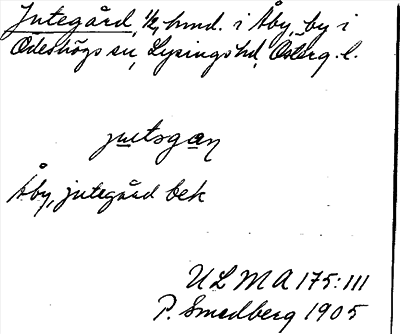 Jutegård, ½ hmd. i Åby, by i
Ödeshögs sn, Lysings hd, Österg. l.
jutsgan
Åby, jutegård bek
ULMA 175:111
P. Smedberg 1905